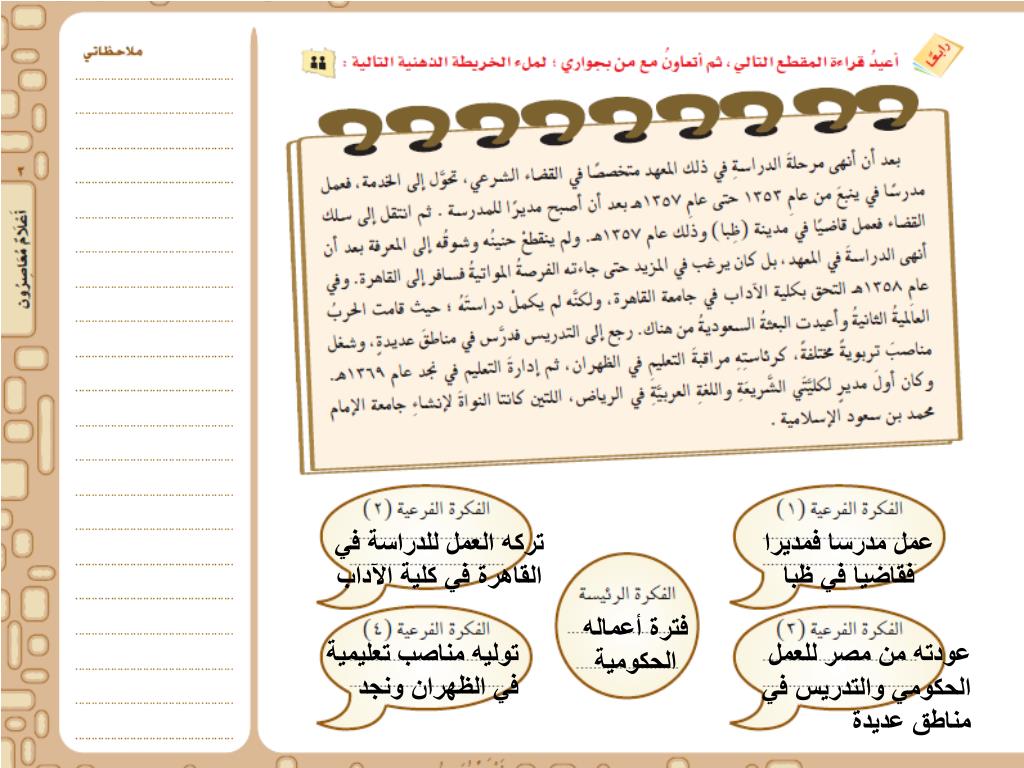 رابعًا
أعيدُ قراءة المقطع التالي ، ثم أتعاونُ مع من بجواري ؛ لملء الخريطة الذهنية التالية :
ملاحظاتي
بعد أن أنهى مرحلةَ الدراسةِ في ذلك المعهد متخصصًا في القضاء الشرعي، تحوَّل إلى الخدمة، فعمل
مدرسًا في ينبعَ من عامِ ١٣٥٣ حتى عامِ ١٣٥٧هـ بعد أن أصبح مديرًا للمدرسة . ثم انتقل إلى سلك
القضاء فعمل قاضيًا في مدينة (ظِبا) وذلك عام ١٣٥٧هـ. ولم ينقطعْ حنينُه وشوقُه إلى المعرفة بعد أن
أنهى الدراسةَ في المعهد، بل كان يرغب في المزيد حتى جاءته الفرصةُ المواتيةُ فسافر إلى القاهرة. وفي
عام ١٣٥٨هـ التحق بكلية الآداب في جامعة القاهرة، ولكنَّه لم يكملْ دراستَهُ ؛ حيث قامت الحربُ
العالميةُ الثانيةُ وأعيدت البعثةُ السعوديةُ من هناك. رجع إلى التدريس فدرَّس في مناطقَ عديدةٍ، وشغل
مناصبَ تربويةً مختلفةً، كرئاستِهِ مراقبةَ التعليمِ في الظهران، ثم إدارةَ التعليمِ في نجد عام ١٣٦٩هـ.
وكان أولَ مديرٍ لكليَّتَي الشَّريعَةِ واللغةِ العربيَّةِ في الرياض، اللتين كانتا النواةَ لإنشاءِ جامعة الإمام
محمد بن سعود الإسلامية .
٢
أَعْلَامٌ مُعَاصِرُون
الفكرة الفرعية (١)
عمل مدرسا فمديرا
فقاضيا في ظبا
الفكرة الفرعية (٢)
تركه العمل للدراسة في
القاهرة في كلية الآداب
الفكرة الرئيسة
فترة أعماله
الحكومية
الفكرة الفرعية (٣)
عودته من مصر للعمل
الحكومي والتدريس في
مناطق عديدة
الفكرة الفرعية (٤)
توليه مناصب تعليمية
في الظهران ونجد